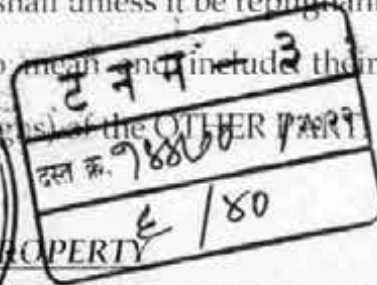 shall unless it be repugnant
mean and include their
of the OTHER PART
ट न म - ३
दस्त क्र.
६ / ४०
PROPERTY